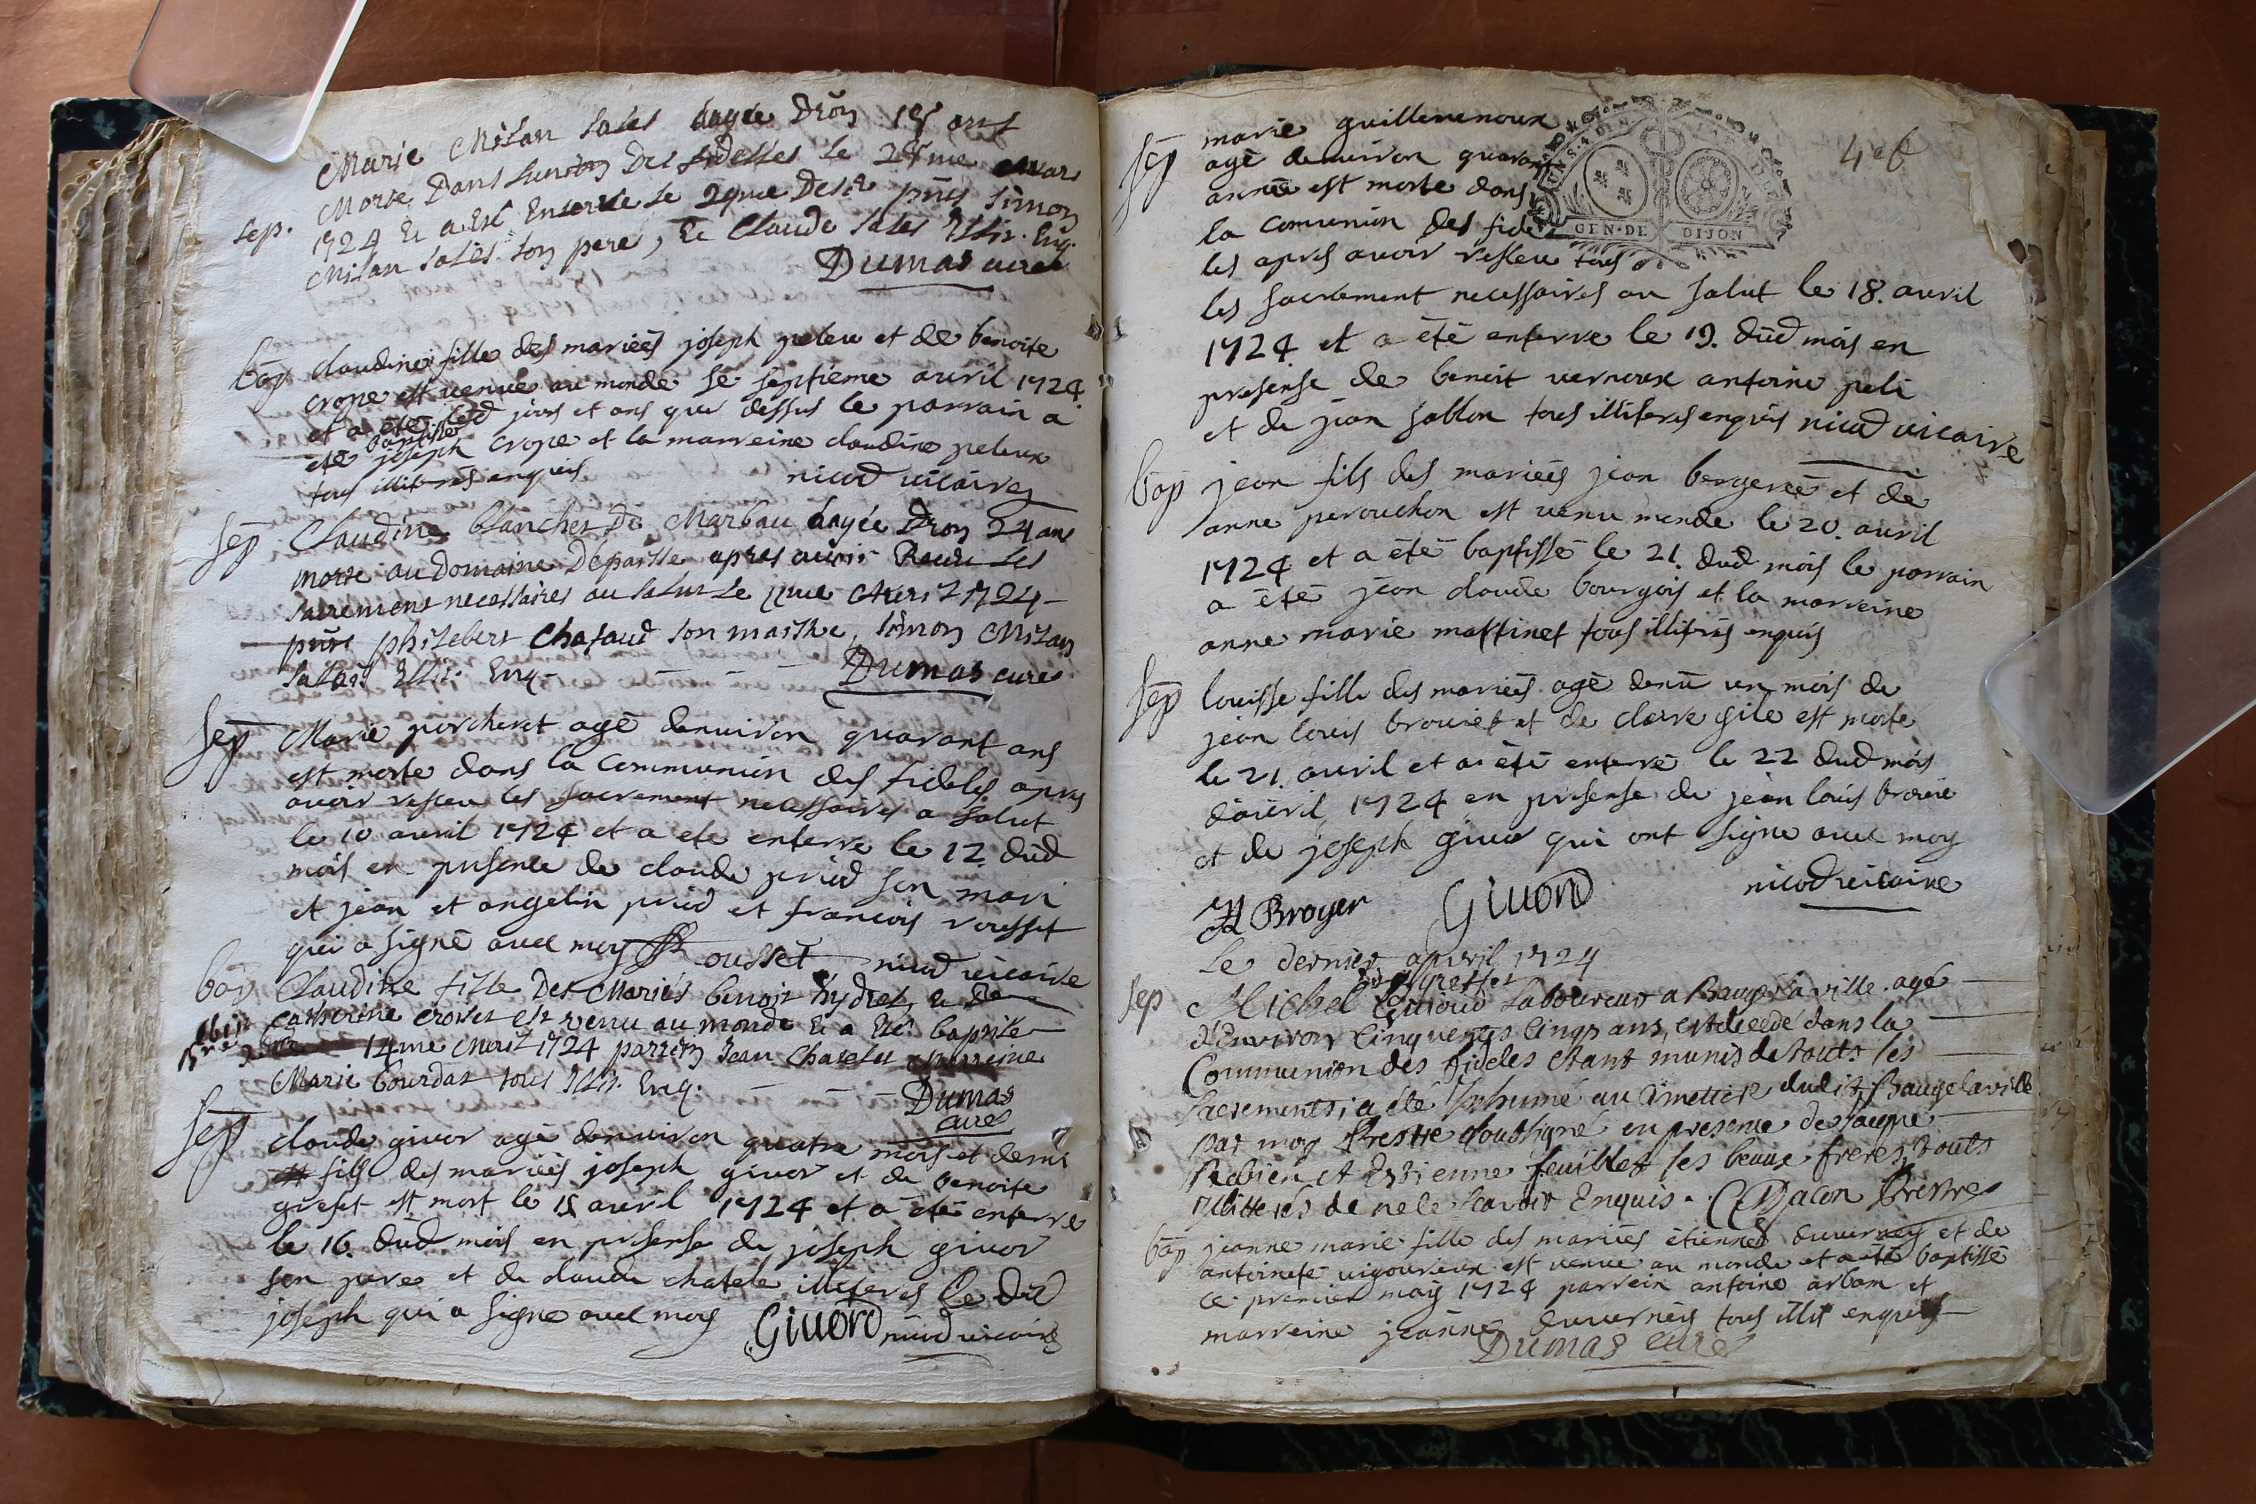 Marie Milan Sales aagée Dron 15 ans
Morte Dans Lunion Des fidelles Le 28me Mars
sep. 1724 Et a Esté Enterrée Le 29me Desd. pnts Simon
Milan Sales son pere, Et Claude Sales Illit. Enq.
Dumas curé
bap claudine fille des mariéés joseph peleu et de benoite
crope est venue au monde le septieme avril 1724
et a été led jours et ans que dessus le parrain a
baptisse
eté joseph crope et la marreine claudine peleux
tous illitérés enquis nicod vicaire
sep Claudine blanchet De Marbau aagée Dron 24 ans
morte au domaine Deparsse apres avoir Receu Les
sacrements necessaires au salut Le 11me Avril 1724
pnts philebert Chafaud son maistre, Simon Milan
Sales Illit. Enq. Dumas curé
sep Marie porcheret agé denuiron quarant ans
est morte dans la communion des fideles apres
avoir resceu les sacrement necessaires a salut
le 10 avril 1724 et a ete enterre le 12 dud
mois en presence de claude prud son mari
et jean et angelin prud et francois rousset
qui a signé avec moy Rousset nicod vicaire
bap Claudine fille Des Mariés benoit hydrel, Et De
catherine crovet est venu au monde Et a Eté baptisé
14me Avril 1724 parrein Jean Chatelet marreine
Marie bourdat tous Illit. Enq.
Dumas
curé
sep claude givor agé denuiron quatre mois et demi
fils des mariéés joseph givor et de benoite
grefet est mort le 15 avril 1724 et a été enterré
le 16 dud mois en presense de joseph givor
son pere et de claude chatele illiteres Le dit
joseph qui a signe avec moy Givord nicod vicaire
4e6
GEN·DE DIJON
sep marie guillemenoux
agé denuiron quarant
année est morte dans
la comunion des fide
les apres avoir resseu tous
les sacrement necessaires au salut le 18. avril
1724 et a été enterre le 19. dud mois en
presense de benoit vernoux antoine peli
et de jean sablon tous illiteres enquis nicod vicaire
bap jean fils des mariéés jean bergereé et de
anne perouchon est venu monde le 20. avril
1724 et a été baptissé le 21. dud mois le parrain
a été jean claude bourgois et la marreine
anne marie mattinet tous illitiris enquis
sep louisse fille des mariéés agé denu un mois de
jean louis brouiet et de clerre gile est morte
le 21. avril et a été enterré le 22 dud mois
d'avril 1724 en presense de jean louis broüie
et de joseph givor qui ont signe avec moy
Broyer Givord nicod vicaire
Le dernier apvril 1724
sep Michel Laboureur a Baugé la ville agé
d'Environ Cinquentes Cinqs ans, est decedé dans la
Communion des fideles étant munis de touts les
Sacrements; a été Inhumé au Cimettiere dudit Baugé la ville
par moy Prestre soubsigné en presence de Jaque
Rebien et Estienne feuillet ses beaux freres, touts
Illitterés de ne le scavoir Enquis. Dacon Prestre
bap jeanne marie fille des mariéés étienne duverney et de
antoineté vigoureux est venue au monde et a été baptissé
ce premier may 1724 parrein antoine arban et
marreine jeanne duverneis tous illit enquis
Dumas curé